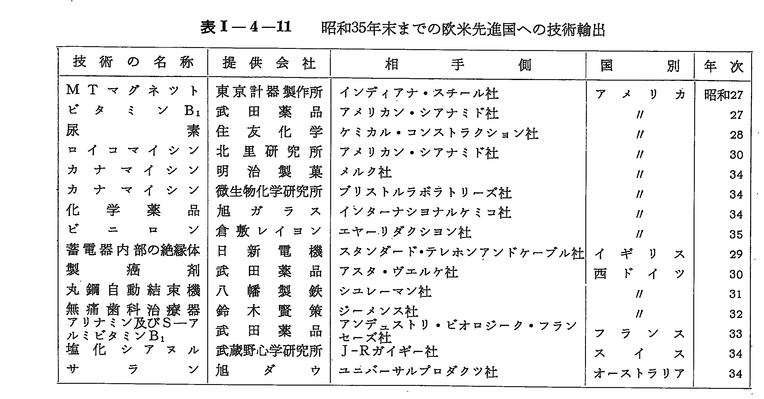 表Ⅰ—4—11 昭和35年末までの欧米先進国への技術輸出
技術の名称 提供会社 相手側 国別 年次
MTマグネット 東京計器製作所 インディアナ・スチール社 アメリカ 昭和27
ビタミンB₁ 武田薬品 アメリカン・シアナミド社 〃 27
尿素 住友化学 ケミカル・コンストラクション社 〃 28
ロイコマイシン 北里研究所 アメリカン・シアナミド社 〃 30
カナマイシン 明治製菓 メルク社 〃 34
カナマイシン 微生物化学研究所 ブリストルラボラトリーズ社 〃 34
化学薬品 旭ガラス インターナショナルケミコ社 〃 34
ビニロン 倉敷レイヨン エヤーリダクション社 〃 35
蓄電器内部の絶縁体 日新電機 スタンダード・テレホンアンドケーブル社 イギリス 29
製癌剤 武田薬品 アスタ・ヴエルケ社 西ドイツ 30
丸鋼自動結束機 八幡製鉄 シユレーマン社 〃 31
無痛歯科治療器 鈴木賢策 ジーメンス社 〃 32
アリナミン及びS—ア
ルミビタミンB₁ 武田薬品 アンデュストリ・ビオロジーク・フラン
セーズ社 フランス 33
塩化シアヌル 武蔵野心学研究所 J-Rガイギー社 スイス 34
サラン 旭ダウ ユニバーサルプロダクツ社 オーストラリア 34